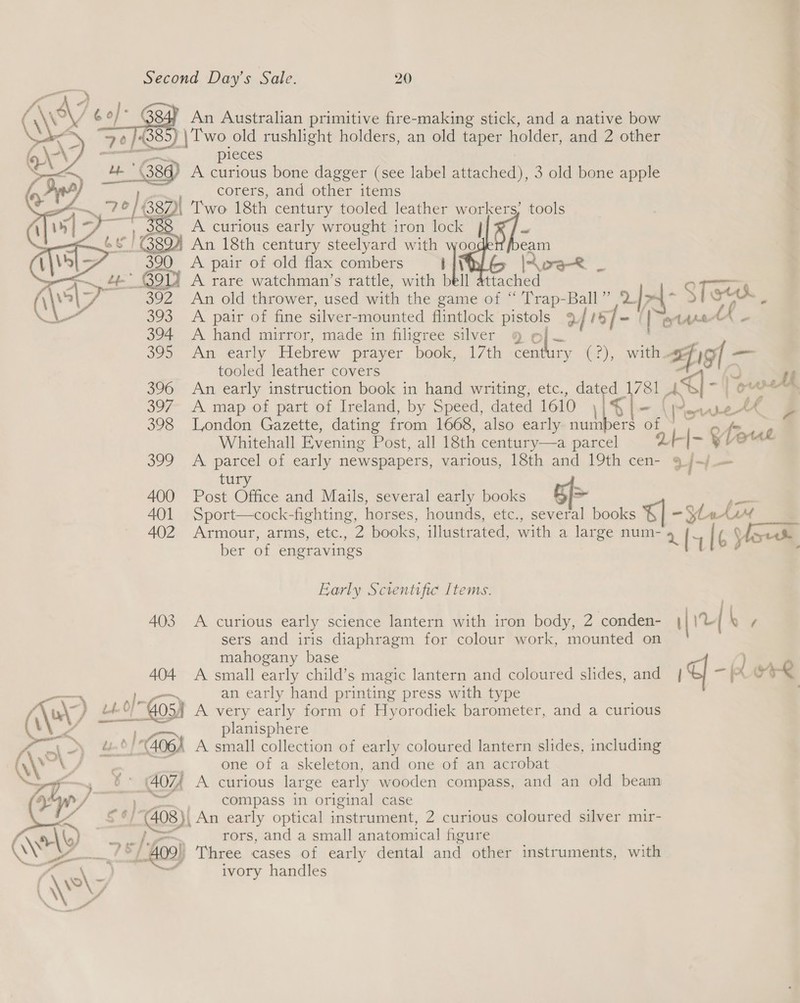 Second Day's Sale. 20
384 An Australian primitive fire-making stick, and a native bow
385 Two old rushlight holders, an old taper holder, and 2 other
pieces
386 A curious bone dagger (see label attached), 3 old bone apple
corers, and other items
387 Two 18th century tooled leather workers' tools
388 A curious early wrought iron lock
389 An 18th century steelyard with wooden beam
390 A pair of old flax combers
391 A rare watchman's rattle, with bell attached
392 An old thrower, used with the game of “ Trap-Ball ”
393 A pair of fine silver-mounted flintlock pistols
394 A hand mirror, made in filigree silver
395 An early Hebrew prayer book, 17th century (?), with
tooled leather covers
396 An early instruction book in hand writing, etc., dated 1781
397 A map of part of Ireland, by Speed, dated 1610
398 London Gazette, dating from 1668, also early numbers of
Whitehall Evening Post, all 18th century—a parcel
399 A parcel of early newspapers, various, 18th and 19th cen-
tury
400 Post Office and Mails, several early books
401 Sport—cock-fighting, horses, hounds, etc., several books
402 Armour, arms, etc., 2 books, illustrated, with a large num-
ber of engravings
Early Scientific Items.
403 A curious early science lantern with iron body, 2 conden-
sers and iris diaphragm for colour work, mounted on
mahogany base
404 A small early child's magic lantern and coloured slides, and
an early hand printing press with type
405 A very early form of Hyorodiek barometer, and a curious
planisphere
406 A small collection of early coloured lantern slides, including
one of a skeleton, and one of an acrobat
407 A curious large early wooden compass, and an old beam
compass in original case
408 An early optical instrument, 2 curious coloured silver mir-
rors, and a small anatomical figure
409 Three cases of early dental and other instruments, with
ivory handles